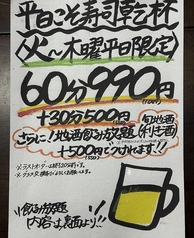 平日こそ寿司乾杯
〈火〜木曜平日限定〉
60分990円
+30分500円
さらに!!地酒飲み放題
+500円でつけれます!!
旬地酒
(利き酒)
飲み放題
内容は裏面より!!